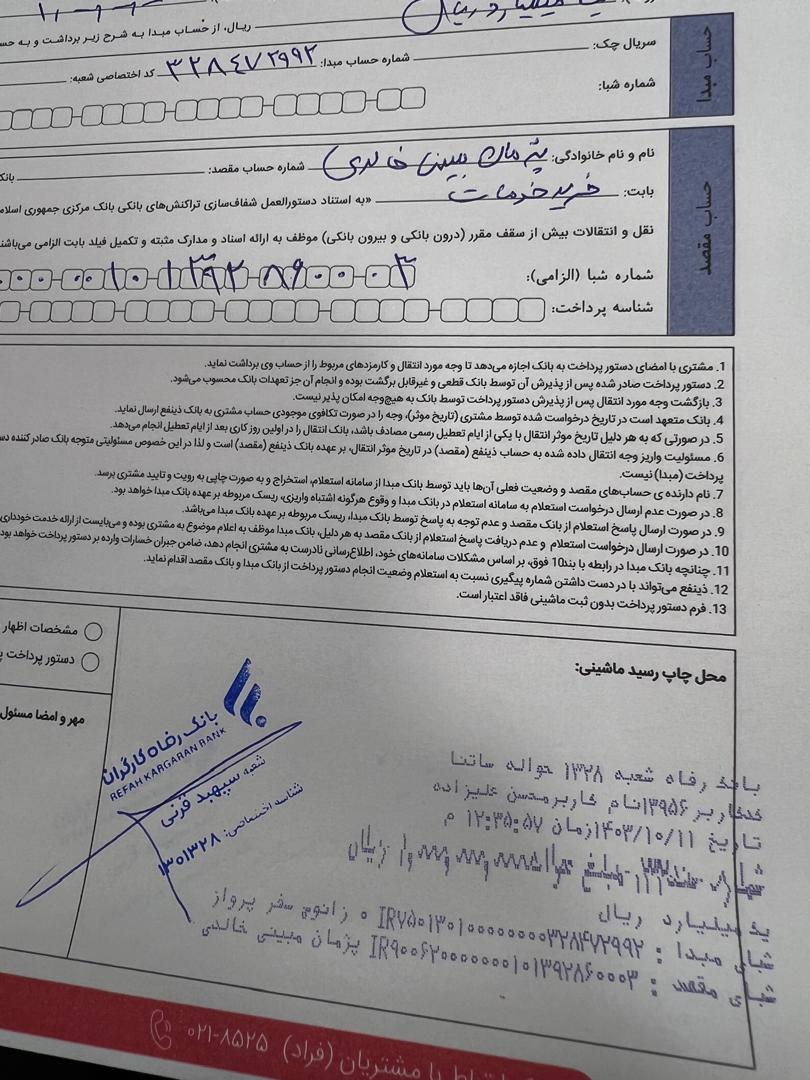 ریال، از حساب مبدا به شرح زیر برداشت و به حس
حساب مبدا
سریال چک:
شماره حساب مبدا: ۳۲۸۴۷۲۹۹۲ کد اختصاصی شعبه:
شماره شبا:
حساب مقصد
نام و نام خانوادگی: پژمان مبینی خالدی شماره حساب مقصد: بانک
بابت: خرید خدمات «به استناد دستورالعمل شفاف‌سازی تراکنش‌های بانکی بانک مرکزی جمهوری اسلام
نقل و انتقالات بیش از سقف مقرر (درون بانکی و بیرون بانکی) موظف به ارائه اسناد و مدارک مثبته و تکمیل فیلد بابت الزامی می‌باشد
شماره شبا (الزامی):
شناسه پرداخت:
1. مشتری با امضای دستور پرداخت به بانک اجازه می‌دهد تا وجه مورد انتقال و کارمزدهای مربوط را از حساب وی برداشت نماید.
2. دستور پرداخت صادر شده پس از پذیرش آن توسط بانک قطعی و غیرقابل برگشت بوده و انجام آن جز تعهدات بانک محسوب می‌شود.
3. بازگشت وجه مورد انتقال پس از پذیرش دستور پرداخت توسط بانک به هیچ‌وجه امکان پذیر نیست.
4. بانک متعهد است در تاریخ درخواست شده توسط مشتری (تاریخ موثر)، وجه را در صورت تکافوی موجودی حساب مشتری به بانک ذینفع ارسال نماید.
5. در صورتی که به هر دلیل تاریخ موثر انتقال با یکی از ایام تعطیل رسمی مصادف باشد، بانک انتقال را در اولین روز کاری بعد از ایام تعطیل انجام می‌دهد.
6. مسئولیت واریز وجه انتقال داده شده به حساب ذینفع (مقصد) در تاریخ موثر انتقال، بر عهده بانک ذینفع (مقصد) است و لذا در این خصوص مسئولیتی متوجه بانک صادر کننده دس
پرداخت (مبدا) نیست.
7. نام دارنده ی حساب‌های مقصد و وضعیت فعلی آن‌ها باید توسط بانک مبدا از سامانه استعلام، استخراج و به صورت چاپی به رویت و تایید مشتری برسد.
8. در صورت عدم ارسال درخواست استعلام به سامانه استعلام در بانک مبدا و وقوع هرگونه اشتباه واریزی، ریسک مربوطه بر عهده بانک مبدا خواهد بود.
9. در صورت ارسال پاسخ استعلام از بانک مقصد و عدم توجه به پاسخ توسط بانک مبدا، ریسک مربوطه بر عهده بانک مبدا می‌باشد.
10. در صورت ارسال درخواست استعلام و عدم دریافت پاسخ استعلام از بانک مقصد به هر دلیل، بانک مبدا موظف به اعلام موضوع به مشتری بوده و می‌بایست از ارائه خدمت خودداری
11. چنانچه بانک مبدا در رابطه با بند10 فوق، بر اساس مشکلات سامانه‌های خود، اطلاع‌رسانی نادرست به مشتری انجام دهد، ضامن جبران خسارات وارده بر دستور پرداخت خواهد بود
12. ذینفع می‌تواند با در دست داشتن شماره پیگیری نسبت به استعلام وضعیت انجام دستور پرداخت از بانک مبدا و بانک مقصد اقدام نماید.
13. فرم دستور پرداخت بدون ثبت ماشینی فاقد اعتبار است.
مشخصات اظهار
دستور پرداخت
مهر و امضا مسئول
محل چاپ رسید ماشینی:
بانک رفاه کارگران
REFAH KARGARAN BANK
شعبه سپهبد قرنی
شناسه اختصاصی: ۱۳۰۱۳۲۸
بانک رفاه شعبه ۱۳۲۸ حواله ساتنا
کدکاربر ۱۳۹۵۶نام کاربرمحسن علیزاده
تاریخ ۱۴۰۳/۱۰/۱۱زمان ۱۲:۳۵:۵۷ م
یک میلیارد ریال
شبای مبدا : IR۷۵۰۱۳۰۱۰۰۰۰۰۰۰۰۳۲۸۴۷۲۹۹۲ ه زانوج سفر پرواز
شبای مقصد : IR۹۰۰۶۲۰۰۰۰۰۰۰۱۰۱۳۹۲۸۶۰۰۰۳ پژمان مبینی خالدی
ارتباط با مشتریان (فراد) ۰۲۱-۸۵۲۵